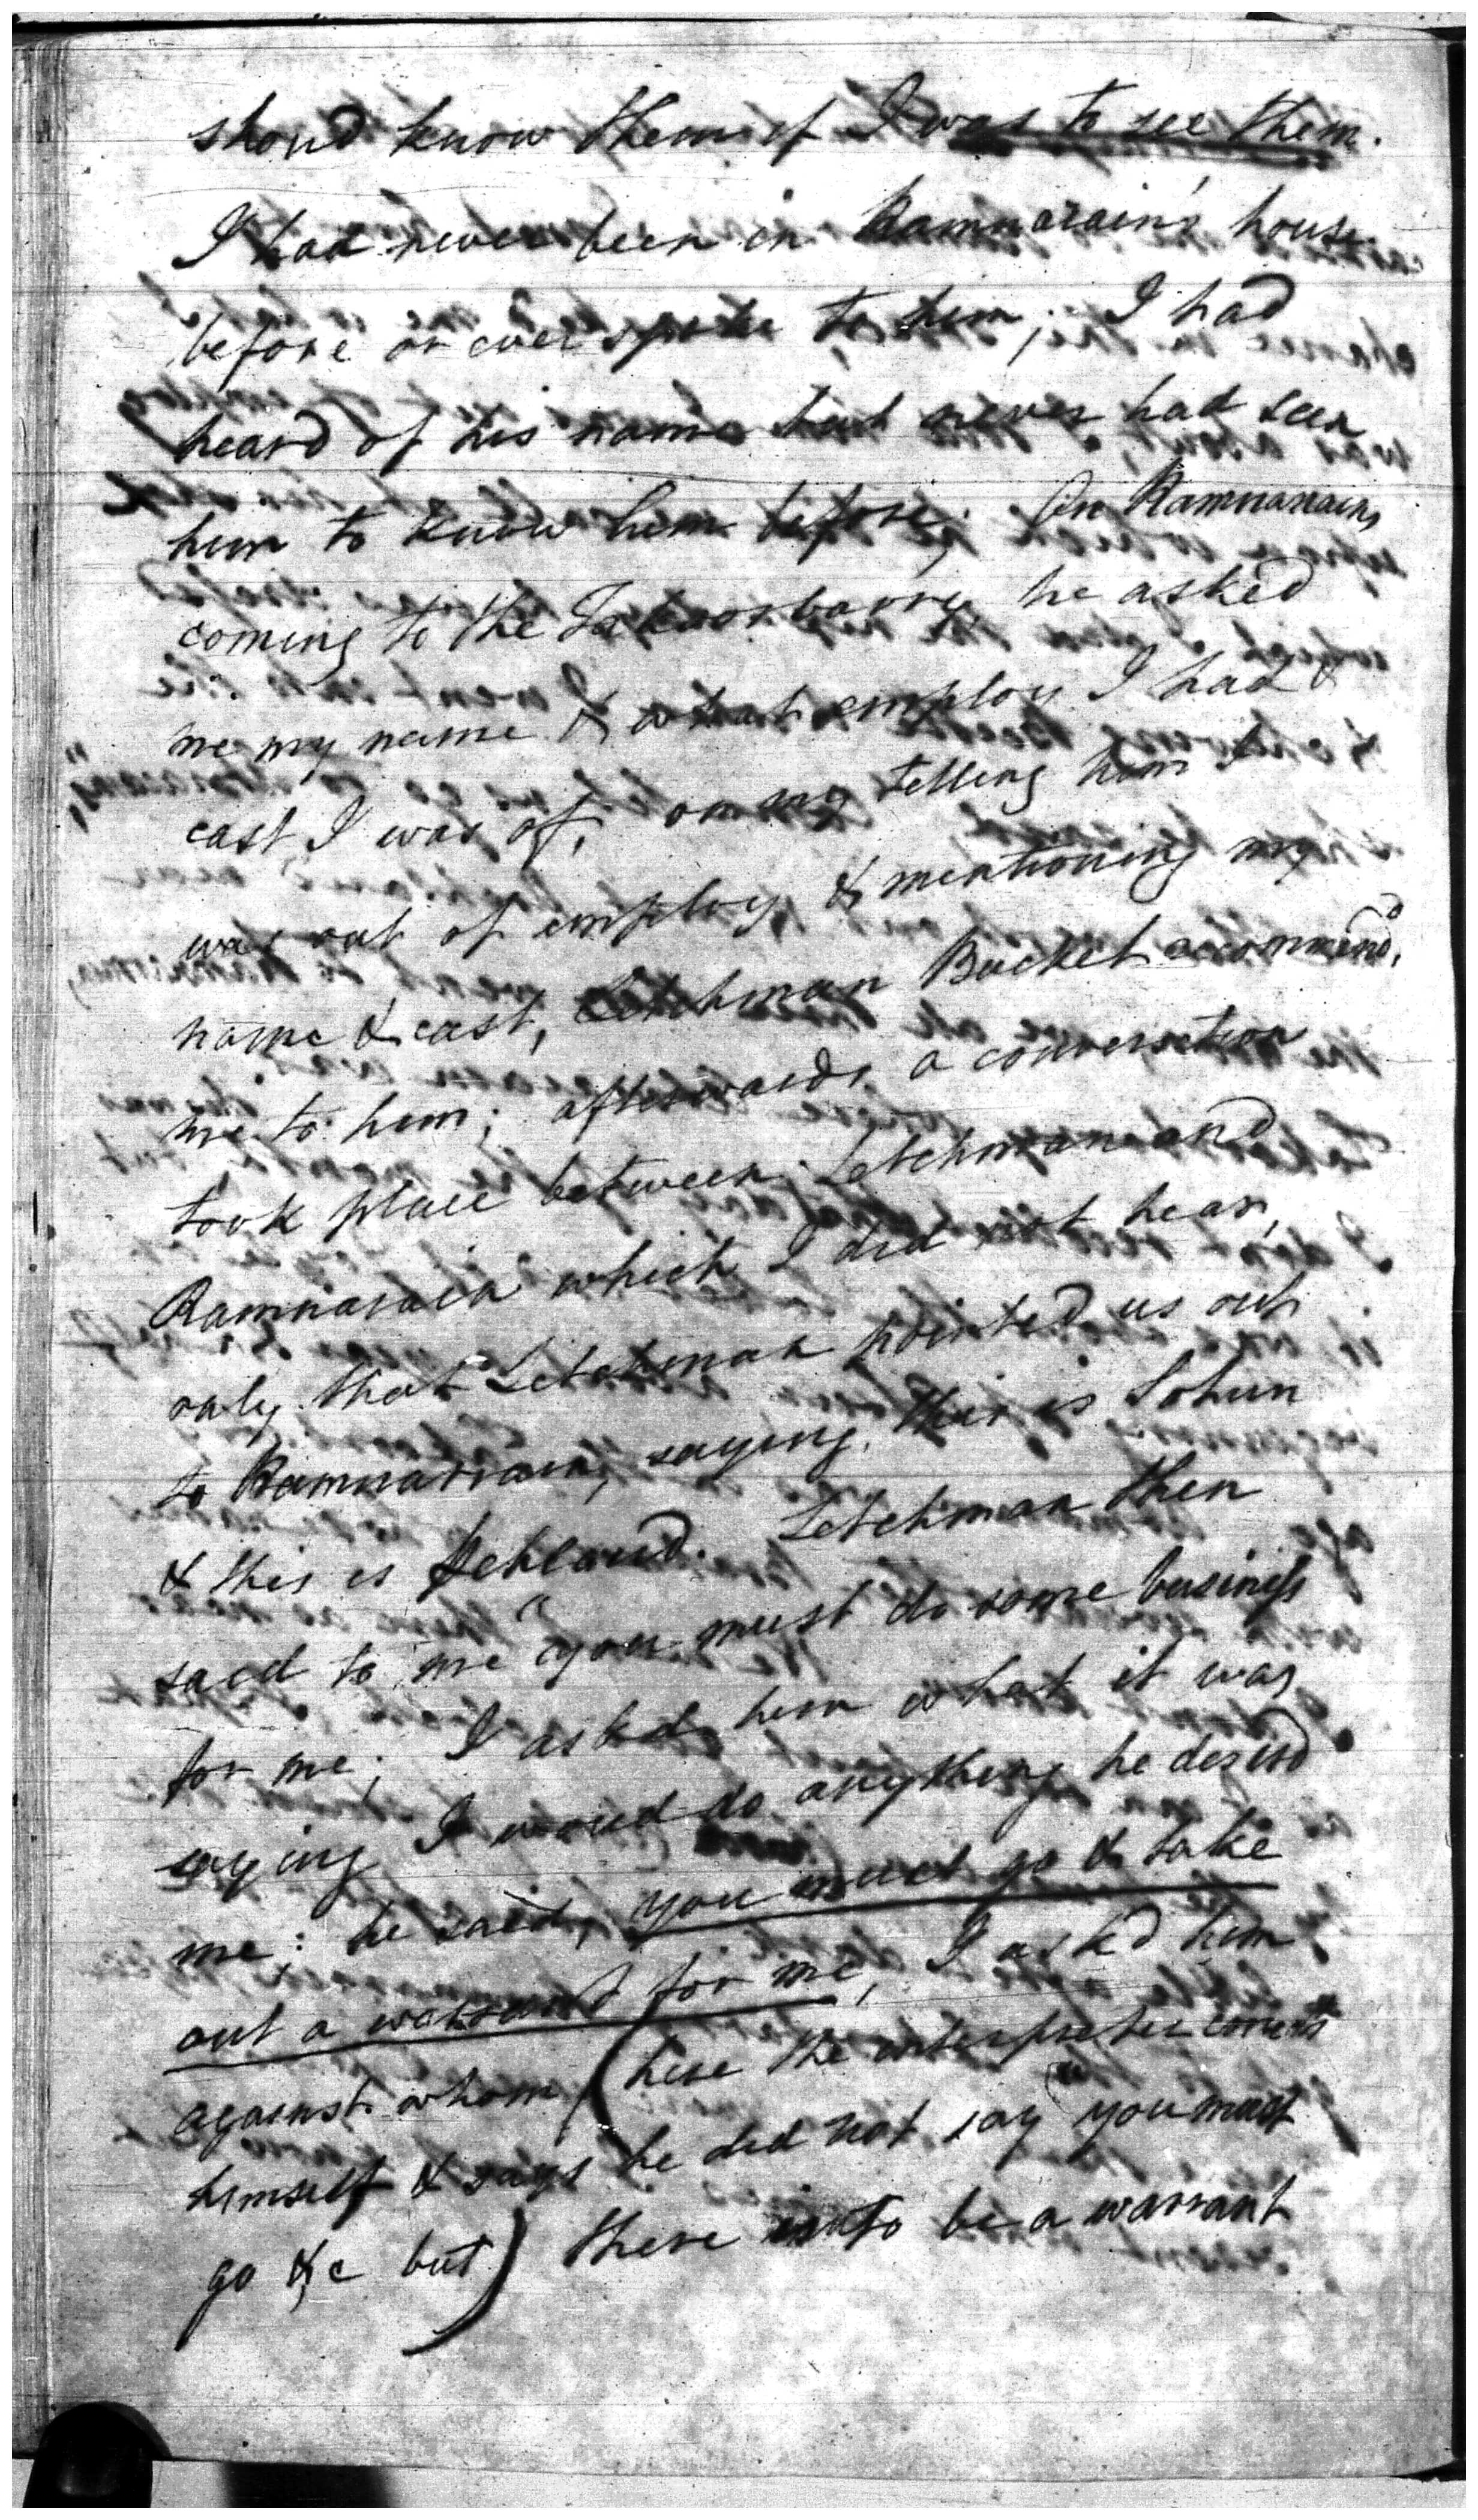 shoud know them if I was to see them.
I had never been in Ramnarain's house
before or ever spoke to him; I had
heard of his name but never had seen
him to know him before; On Ramnarrains
coming to the Takoorbarry, he asked
me my name & what employ I had &
cast I was of, on my telling him I
was out of employ, & mentioning my
name & cast, Letchman Bucket recommend'd
me to him; afterwards a conversation
took place between Letchman and
Ramnarain which I did not hear,
only that Letchman pointed us out
to Ramnarrain, saying, this is Sohun
& this is . Letchman then
said to me "you must do some business
for me; I asked him what it was
saying I woud do anything he desird
me; he said, you must go & take
out a warrant for me, I ask'd him
against whom (here the interpreter corrects
himself & says he did not say "you must
go &c but) there is to be a warrant